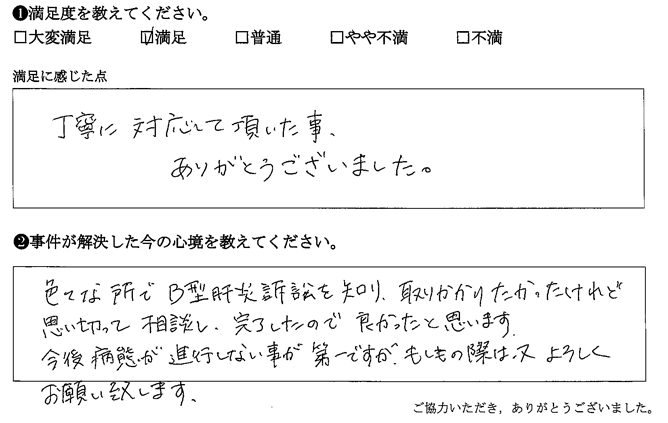 ❶満足度を教えてください。
□大変満足 ☑満足 □普通 □やや不満 □不満
満足に感じた点
丁寧に対応して頂いた事、
ありがとうございました。
❷事件が解決した今の心境を教えてください。
色々な所でB型肝炎訴訟を知り、取りかかりたかったけれど
思い切って相談し、完了したので良かったと思います。
今後病態が進行しない事が第一ですが、もしもの際は又よろしく
お願い致します、
ご協力いただき，ありがとうございました。